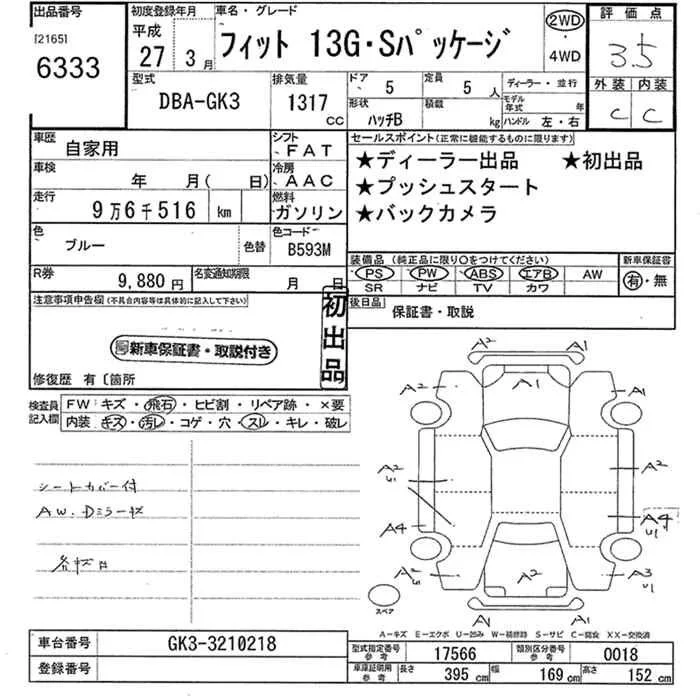 出品番号 初度登録年月 車名・グレード 2WD 評価点
[2165] 平成
6333 27年 3月 フィット 13G・Sパッケージ ・ 4WD 3.5
型式 排気量 ドア 5 定員 5人 ディーラー・並行 外装 内装
DBA-GK3 1317cc 形状 ハッチB 積載 kg モデル年式 年 ハンドル 左・右 C C
車歴 自家用 シフト FAT セールスポイント(正常に機能するものに限ります)
車検 年 月( 日) 冷房 AAC ★ディーラー出品 ★初出品
走行 9万6千516 km 燃料 ガソリン ★プッシュスタート
★バックカメラ
色 ブルー 色替 色コード B593M
装備品(純正品に限り〇をつけてください) 新車保証書
R券 9,880円 名変通知期限 月 日 PS PW ABS エアB AW 有・無
SR ナビ TV カワ
注意事項申告欄(不具合内容等は具体的に記入して下さい) 初出品 後日品 保証書・取説
新車保証書・取説付き
修復歴 有〔箇所
検査員記入欄 FW:キズ・飛石・ヒビ割・リペア跡・×要
内装:キズ・汚レ・コゲ・穴・スレ・キレ・破レ
シートカバー付
A2 A1
A1
A2 A1
A2 U1 A2
A4 A4 U1
A2 U1 A2 A3 U1
スペア A1 A1
A-キズ E-エクボ U-凹み W-補修跡 S-サビ C-腐食 XX-交換済
車台番号 GK3-3210218 型式指定番号 参考 17566 類別区分番号 参考 0018
登録番号 車庫証明用 参考 長さ 395 cm 幅 169 cm 高さ 152 cm